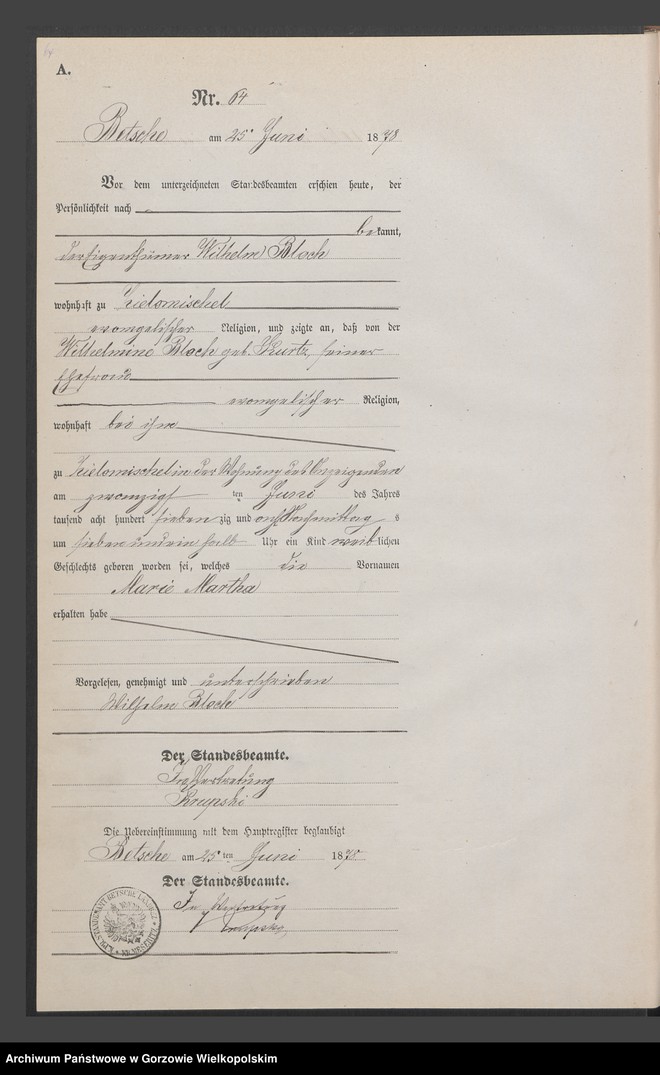 A.
Nr. 64
Betsche am 25ten Juni 1878
Vor dem unterzeichneten Standesbeamten erschien heute, der
Persönlichkeit nach
bekannt,
der Eigenthümer Wilhelm Bloch
wohnhaft zu Zielomischel
evangelischer Religion, und zeigte an, daß von der
Wilhelmine Bloch geb. Kurtz, seiner
Ehefrau
evangelischer Religion,
wohnhaft bei ihm
zu Zielomischel in der Wohnung des Anzeigenden
am zwanzigsten ten Juni des Jahres
tausend acht hundert siebenzig und acht Nachmittags
um sieben und ein halb Uhr ein Kind weiblichen
Geschlechts geboren worden sei, welches die Vornamen
Marie Martha
erhalten habe
Vorgelesen, genehmigt und unterschrieben
Wilhelm Bloch
Der Standesbeamte.
In Vertretung
Krupski
Die Uebereinstimmung mit dem Hauptregister beglaubigt
Betsche am 25ten Juni 1878
Der Standesbeamte.
In Vertretung
Krupski
Archiwum Państwowe w Gorzowie Wielkopolskim